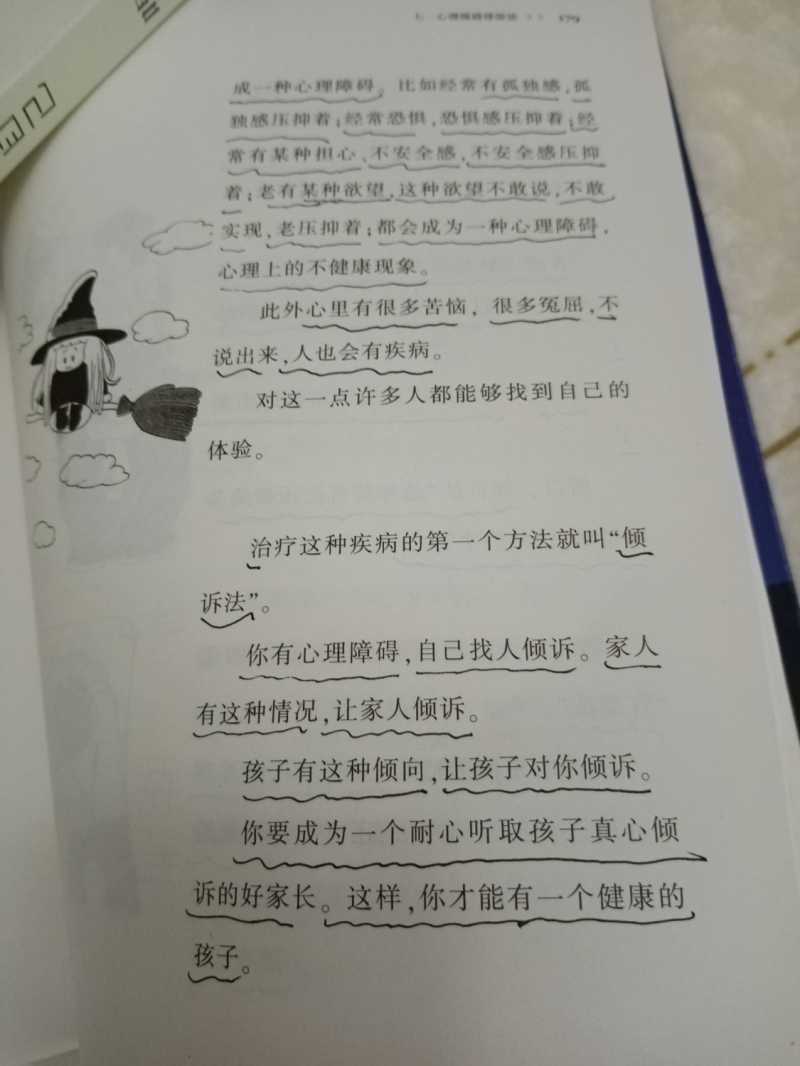 179
成一种心理障碍。比如经常有孤独感,孤
独感压抑着;经常恐惧,恐惧感压抑着;经
常有某种担心,不安全感,不安全感压抑
着;老有某种欲望,这种欲望不敢说,不敢
实现,老压抑着;都会成为一种心理障碍,
心理上的不健康现象。
此外心里有很多苦恼,很多冤屈,不
说出来,人也会有疾病。
对这一点许多人都能够找到自己的
体验。
治疗这种疾病的第一个方法就叫“倾
诉法”。
你有心理障碍,自己找人倾诉。家人
有这种情况,让家人倾诉。
孩子有这种倾向,让孩子对你倾诉。
你要成为一个耐心听取孩子真心倾
诉的好家长。这样,你才能有一个健康的
孩子。